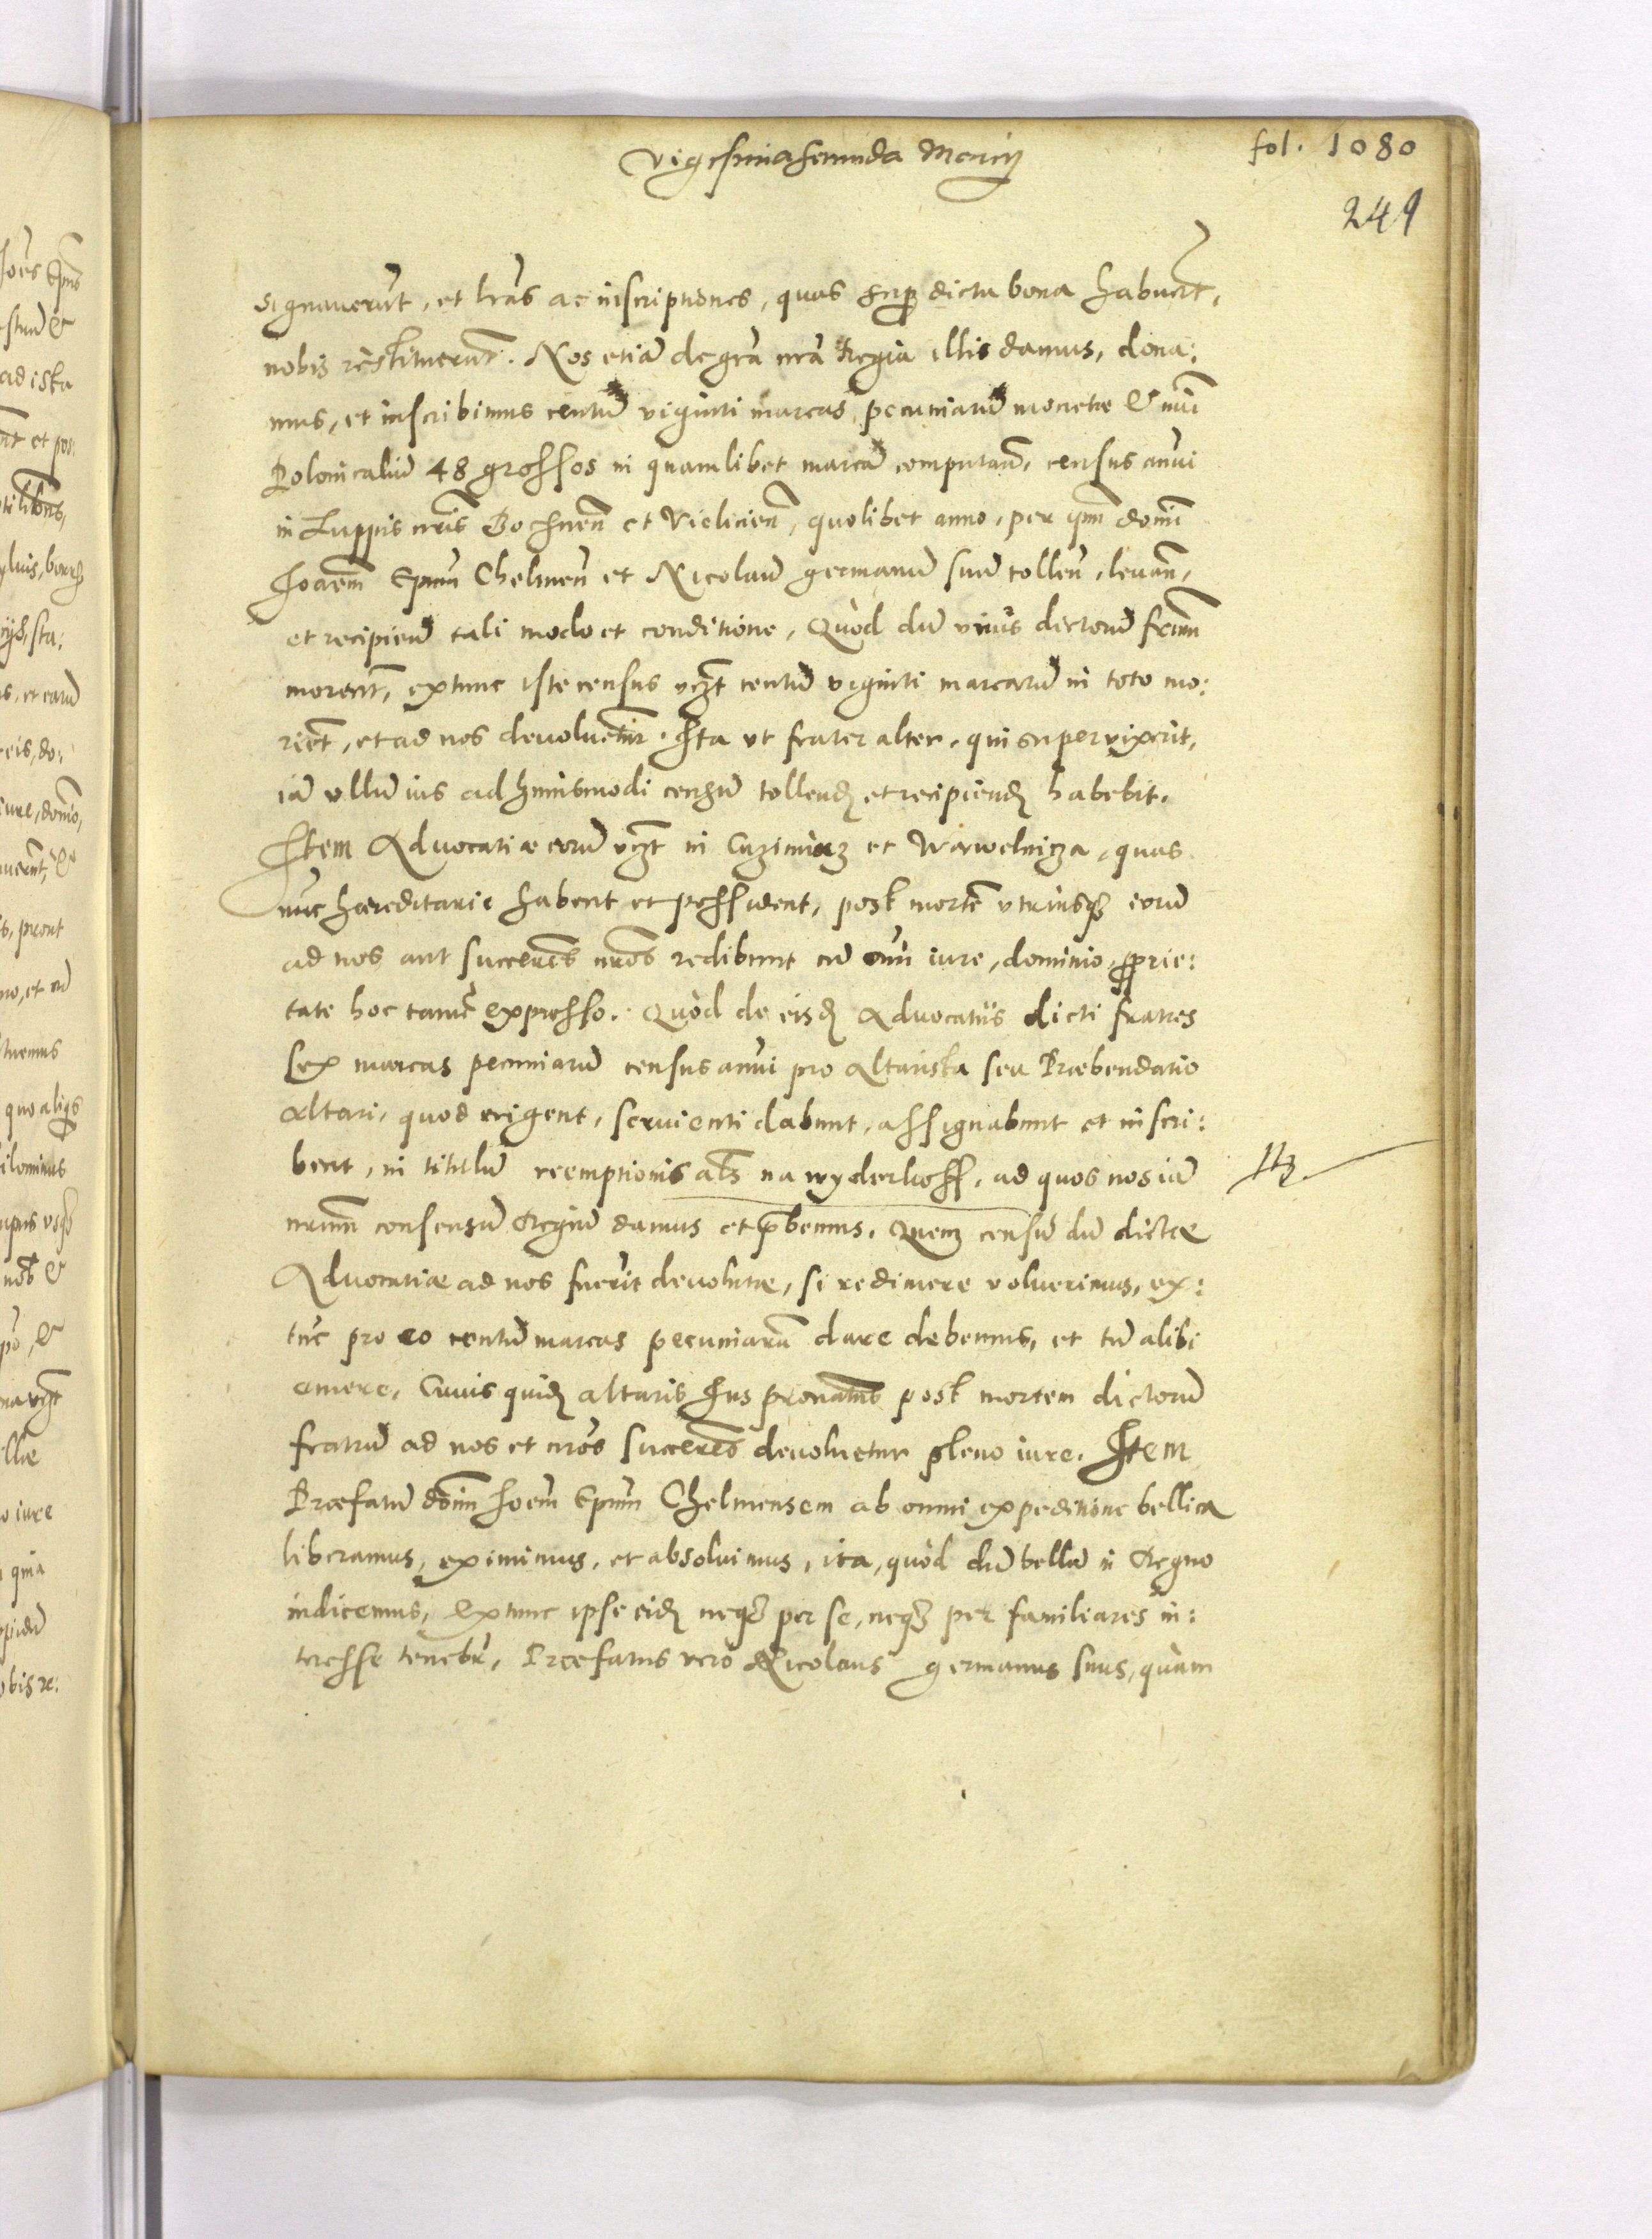 Vigesima secunda Marcij
fol. 1080
249
signaverūt, et lrās ac inscriptiones, quas sup dicta bona habuerūt,
nobis restituerūt. Nos etiā de grā nrā Regia illis damus, dona:
mus, et inscribimus centū viginti marcas pecuniarū monetæ & nūi
Polonicaliū 48 grossos in quamlibet marcā computañ, census anui
in Zuppis nrīs Bochneñ et Vielicieñ, quolibet anno, per dominū
Joāem Epum Chelmeñ et Nicolaū germanū suū tolleñ, levañ,
et recipieñd tali modo et conditione, Quòd dū vnus dictorū frūm
morerēt, extunc iste census vczt centū viginti marcarū in toto mo:
riēt, et ad nos devoluētur. Ita vt frater alter, qui supervixerit,
iā vllū ius ad huiusmodi censū tollend et recipiend habebit.
Item Advocatiæ eorū vczt in Cuzimircz et Wawelnicza, quas
nūc hæreditarie habent et possident, post mortē vtriusq eorū
ad nos aut succeres nros redibunt cū oūi iure, dominio, pprie:
tate hoc tamē expresso. Quòd de eisd Advocatiis dicti fratres
sex marcas pecuniarū census anui pro Altarista seu Præbendario
Altari, quod erigent, servienti dabunt, assignabunt et inscri:
bent, in titulū reemptionis als na wyderkoff, ad quos nos iā
nrum consensū Regiū damus et pbemus. Quem censū dū dictæ
Advocatiæ ad nos fuerīt devolutæ, si redimere voluerimus, ex:
tūc pro eo centū marcas pecuniarū dare debemus, et tū alibi
emere, Cuuis quid altaris Jus pronatus post mortem dictorū
fratrū ad nos et nros succeres devoluetur pleno iure. Item
Præfatū dōm Joem Epum Chelmensem ab omni expeditione bellica
liberamus, eximimus, et absolvimus, ita, quòd dū bellū in Regno
indicemus, Extunc ipse eid neq per se, neq per familiares in:
teresse tenebr, Præfatus verò Nicolaus germanus suus, quàm